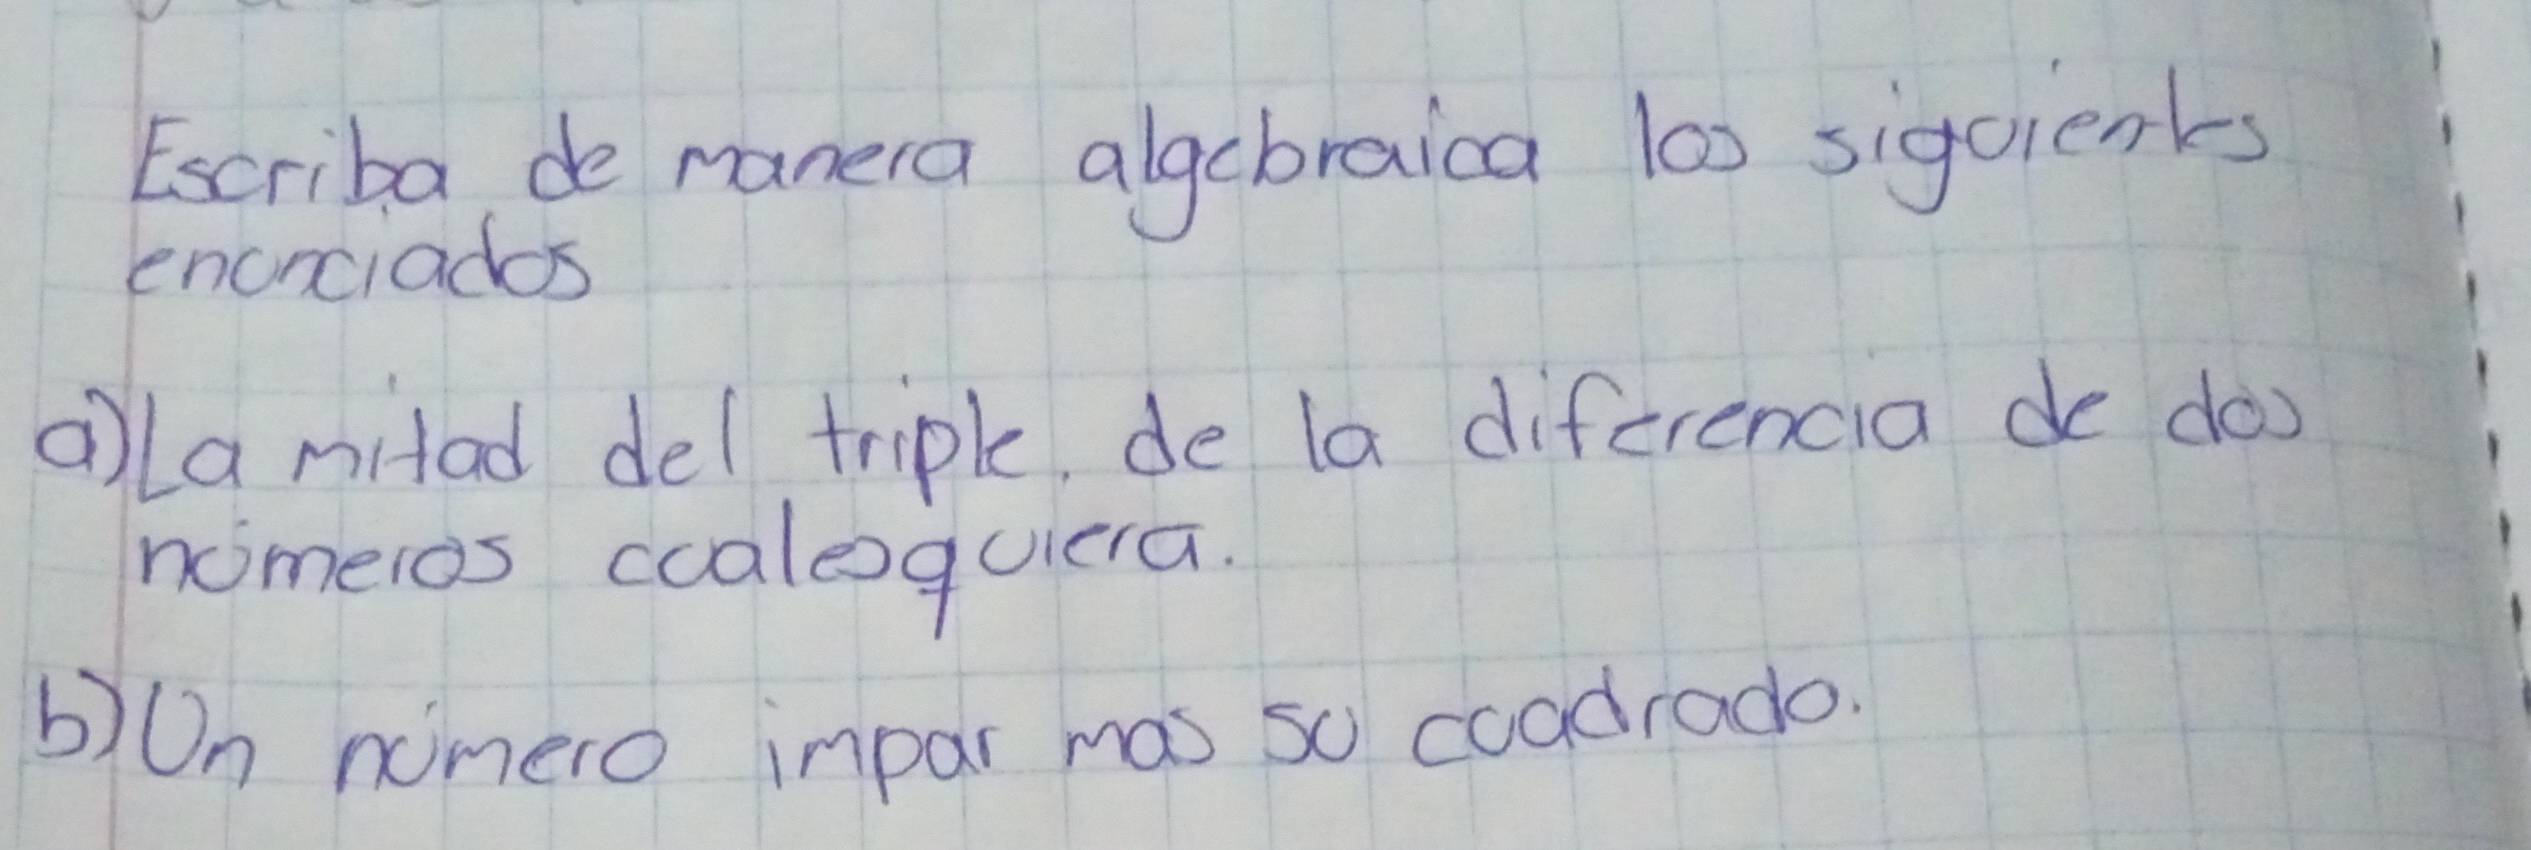 Escriba de manera algebraica los siguientes
enunciados
a) La mitad del triple. de la diferencia de dos
números cualesquiera.
b) Un número impar mas su cuadrado.